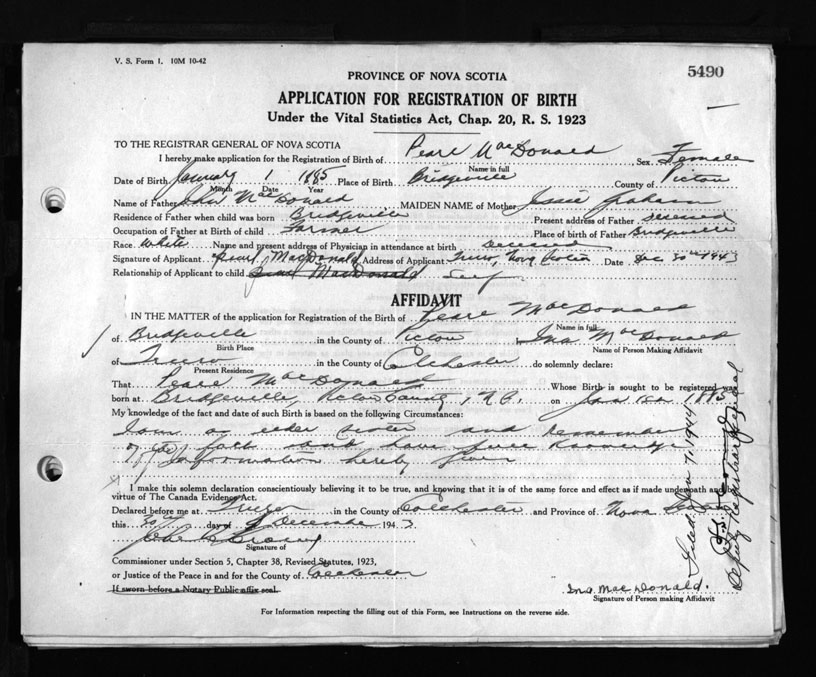 V. S. Form 1. 10M 10-42
5490
PROVINCE OF NOVA SCOTIA
APPLICATION FOR REGISTRATION OF BIRTH
Under the Vital Statistics Act, Chap. 20, R. S. 1923
TO THE REGISTRAR GENERAL OF NOVA SCOTIA
I hereby make application for the Registration of Birth of Pearl MacDonald Sex Female
Name in full
Date of Birth January 1 1885 Place of Birth Bridgeville County of Pictou
Month Date Year
Name of Father John MacDonald MAIDEN NAME of Mother Jessie Graham
Residence of Father when child was born Bridgeville Present address of Father deceased
Occupation of Father at Birth of child Farmer Place of birth of Father Bridgeville
Race White Name and present address of Physician in attendance at birth deceased
Signature of Applicant Pearl MacDonald Address of Applicant Truro, Nova Scotia Date Dec 30th 1943
Relationship of Applicant to child Pearl MacDonald Self
AFFIDAVIT
IN THE MATTER of the application for Registration of the Birth of Pearl MacDonald
Name in full
of Bridgeville in the County of Pictou Ina MacDonald
Birth Place Name of Person Making Affidavit
of Truro in the County of Colchester do solemnly declare:
Present Residence
That Pearl MacDonald Whose Birth is sought to be registered was
born at Bridgeville, Pictou County, N.S. on Jan 1st 1885
My knowledge of the fact and date of such Birth is based on the following Circumstances:
I am an older sister and remember
of the fact and have full knowledge
of information hereby given
I make this solemn declaration conscientiously believing it to be true, and knowing that it is of the same force and effect as if made under oath and
virtue of The Canada Evidence Act.
Declared before me at Truro in the County of Colchester and Province of Nova Scotia
this 30 day of December 1943
Signature of
Commissioner under Section 5, Chapter 38, Revised Statutes, 1923,
or Justice of the Peace in and for the County of Colchester
If sworn before a Notary Public affix seal.
Ina MacDonald.
Signature of Person making Affidavit
For Information respecting the filling out of this Form, see Instructions on the reverse side.
Filed Jan 7, 1944
Deputy Registrar General